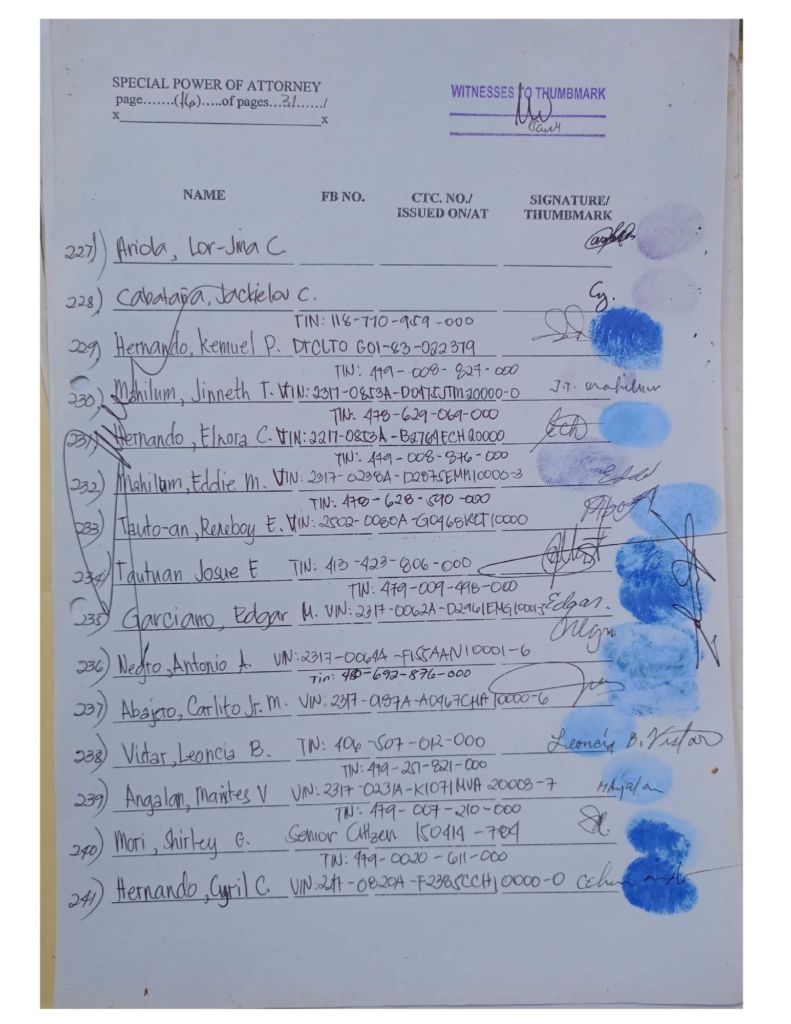 SPECIAL POWER OF ATTORNEY
page.......(16).....of pages...31....../
x x
WITNESSES TO THUMBMARK
NAME FB NO. CTC. NO./ ISSUED ON/AT SIGNATURE/ THUMBMARK
227) Ariola, Lor-Jina C.
228) Cabataña, Jackielou C. Cy.
TIN: 118-770-959-000
229) Hernando, Kemuel P. DTCLTO G01-83-022379
TIN: 479-008-827-000
230) Mahilum, Jinneth T. VIN: 2317-0853A-D0475JTM20000-0 J.T. mahilum
TIN: 478-629-069-000
231) Hernando, Elnora C. VIN: 2217-0853A-B2764ECH20000 Ech
TIN: 479-008-876-000
232) Mahilum, Eddie M. VIN: 2317-0238A-D2875EMM10000-3
TIN: 478-628-590-000
233) Tauto-an, Reneboy E. VIN: 2502-0080A-G0468RET10000
234) Tautuan Josue E TIN: 413-423-806-000
TIN: 479-009-498-000
235) Garciano, Edgar M. VIN: 2317-0062A-D2961EMG10001-5 Edgar.
236) Negro, Antonio A. VIN: 2317-0064A-F1555AAN10001-6 Negro
Tin: 480-692-876-000
237) Abajero, Carlito Jr. M. VIN: 2317-0187A-A0467CMA10000-6
238) Vistar, Leoncia B. TIN: 406-507-012-000 Leoncia B. Vistar
TIN: 479-251-821-000
239) Angalan, Marites V VIN: 2317-0231A-K1071MVA20003-7 MAngalan
TIN: 479-007-210-000
240) Mori, Shirley G. Senior Citizen 150414-784
TIN: 479-0020-611-000
241) Hernando, Cyril C. VIN: 2317-0820A-F2385CCH10000-0